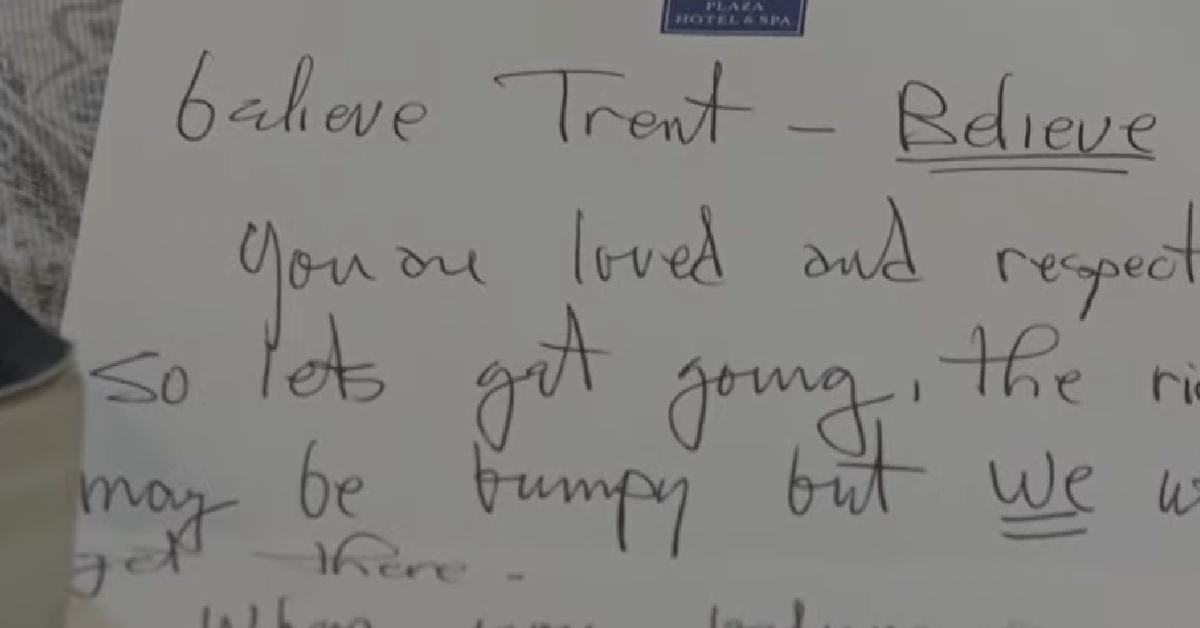 PLAZA
HOTEL & SPA
believe Trent - Believe
you are loved and respect
so lets get going, the
may be bumpy but we
get there.
When